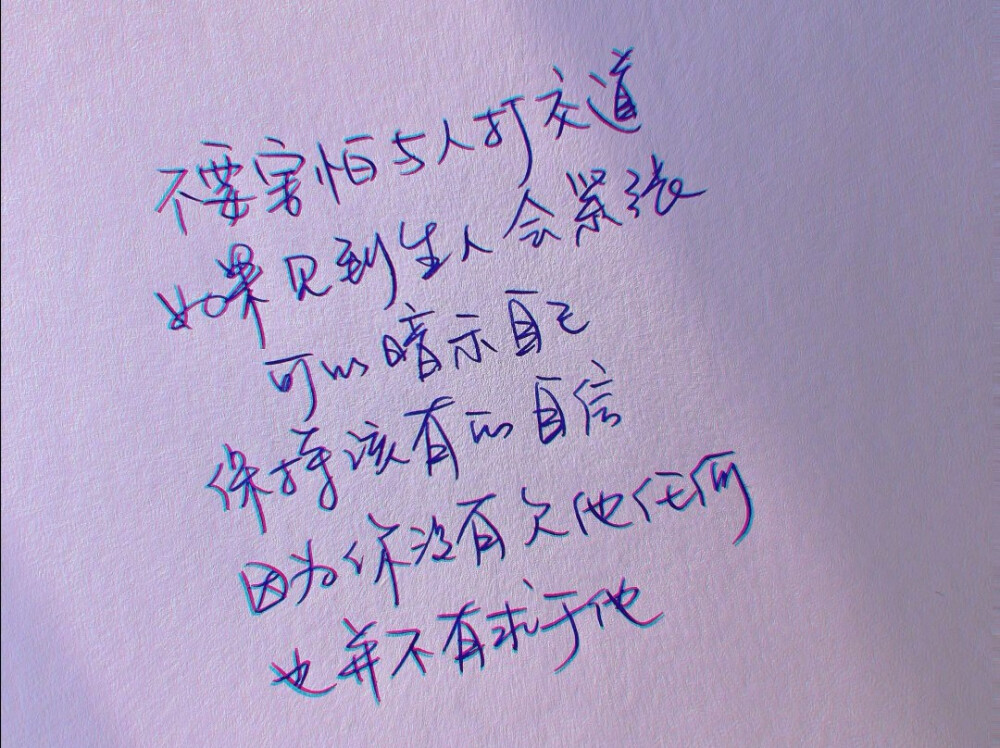 不要害怕与人打交道
如果见到生人会紧张
可以暗示自己
保持该有的自信
因为你没有欠他任何
也并不有求于他